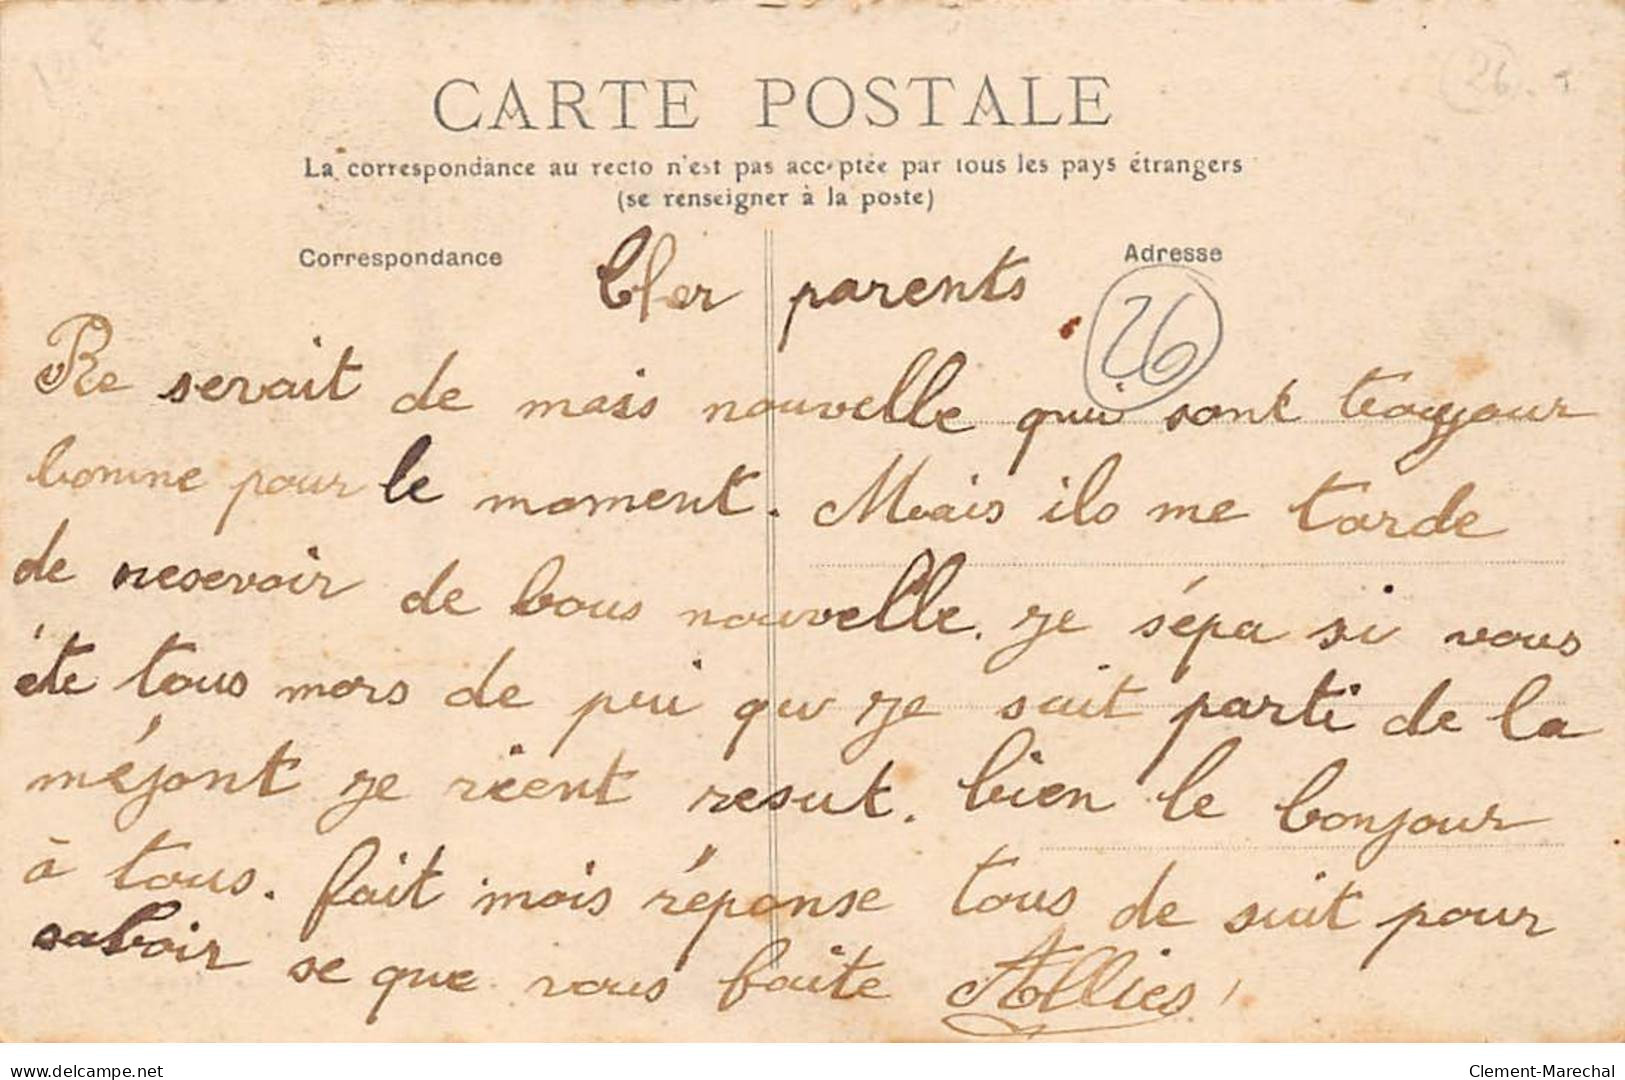 CARTE POSTALE
La correspondance au recto n'est pas acceptée par tous les pays étrangers
(se renseigner à la poste)
Correspondance
Adresse
26
26
Cher parents
Re servait de mais nouvelle qui sont toujour
bonne pour le moment. Mais ils me tarde
de resevoir de bous nouvelle. je sépa si vous
éte tous mors de pui qu je suit parti de la
méjont je rient resut. bien le bonjour
à tous. fait mois réponse tous de suit pour
saboir se que vous faite Allies
delcampe.net
Clement-Marechal